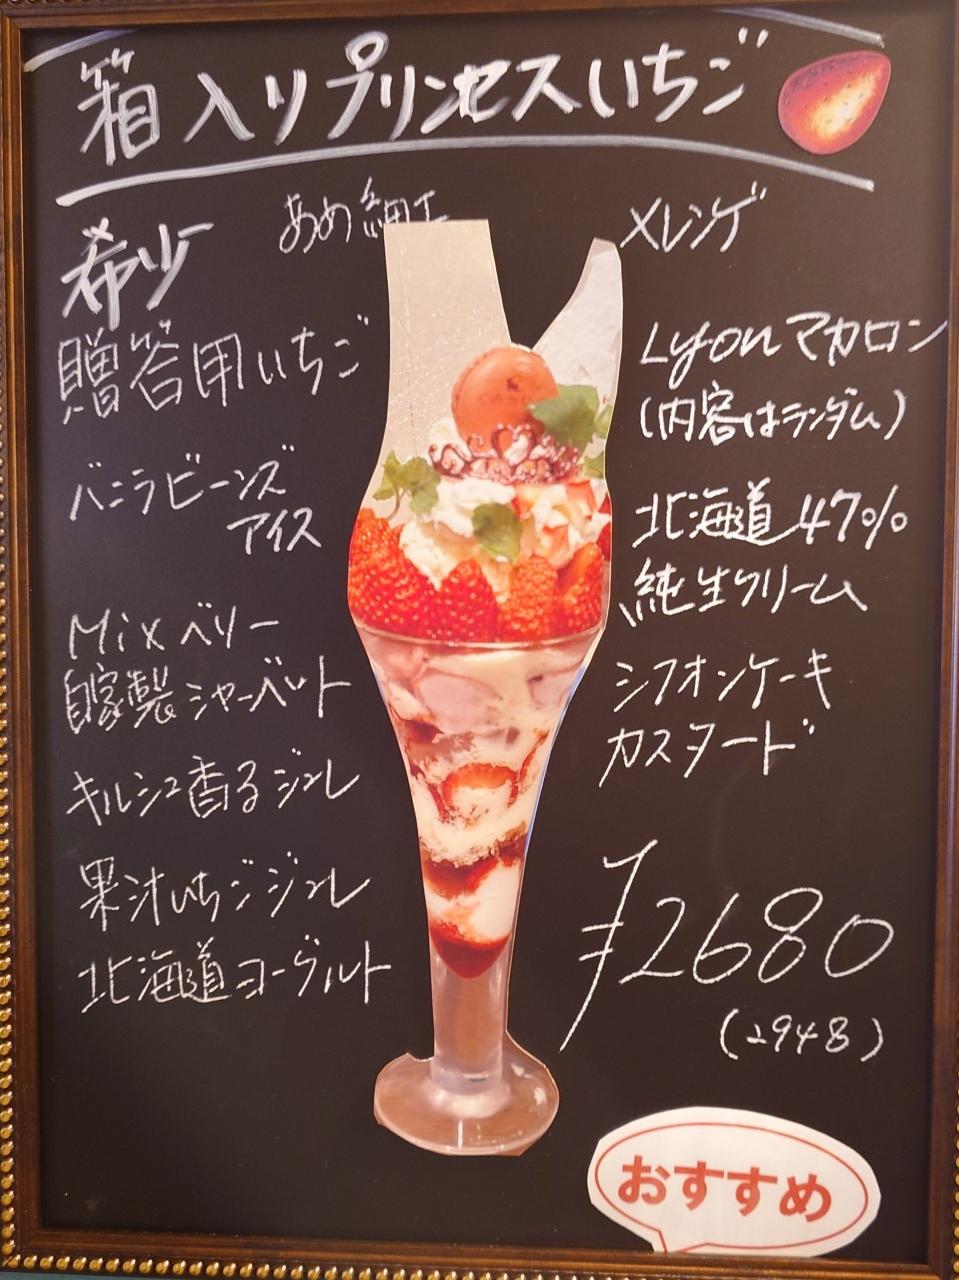 箱入りプリンセスいちご
希少
あめ細工
メレンゲ
贈答用いちご
Lyonマカロン
(内容はランダム)
バニラビーンズ
アイス
北海道47%
純生クリーム
Mixベリー
自家製シャーベット
シフォンケーキ
カスタード
キルシュ香るジュレ
果汁いちごジュレ
北海道ヨーグルト
¥2680
(2948)
おすすめ